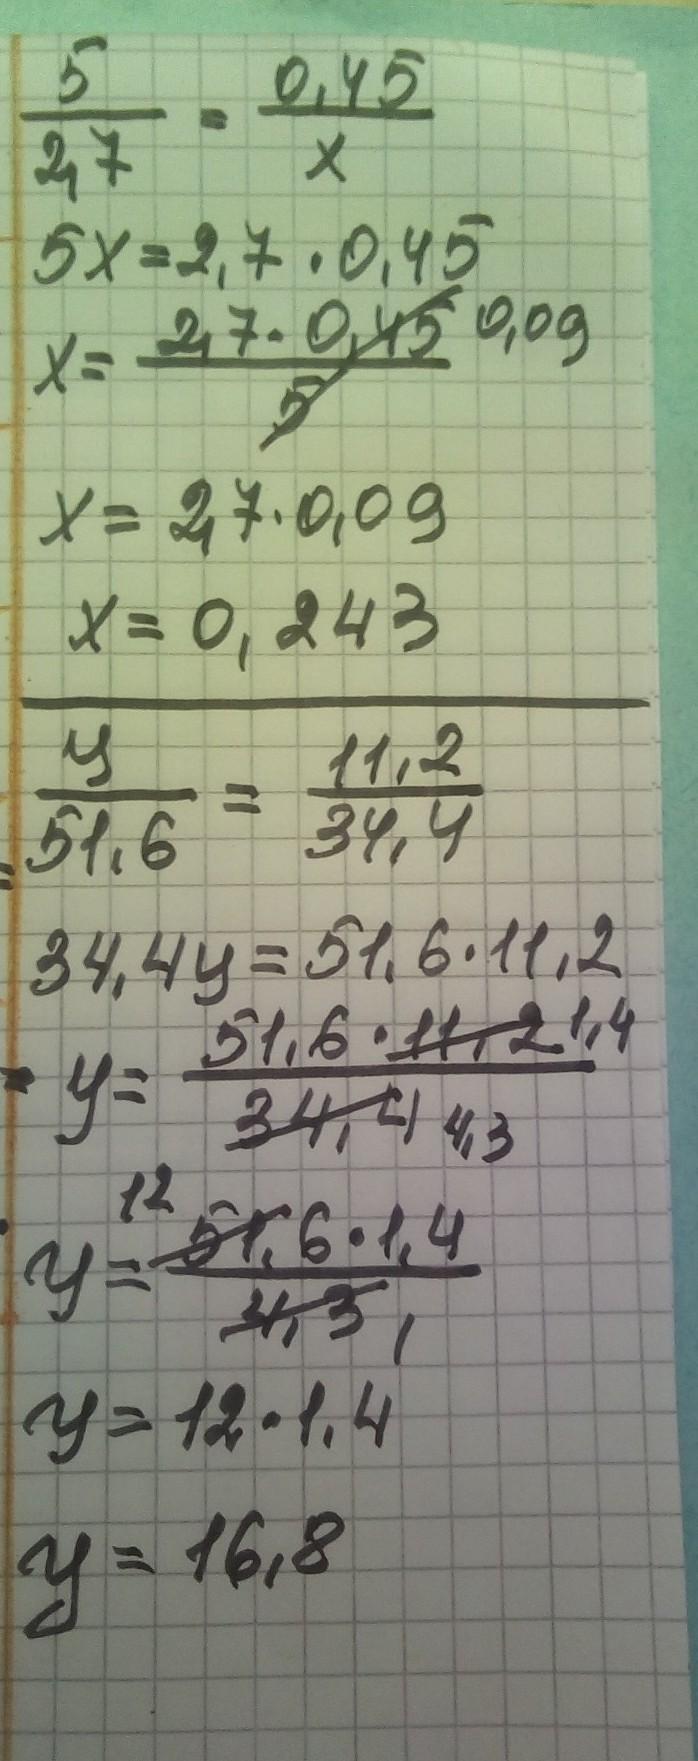 5/2,7 = 0,45/x
5x=2,7·0,45
x= 2,7·0,45/5 0,09
x=2,7·0,09
x=0,243
y/51,6 = 11,2/34,4
34,4y=51,6·11,2
y= 51,6·11,2 1,4/34,4 4,3
y= 12 51,6·1,4/4,3 1
y=12·1,4
y=16,8